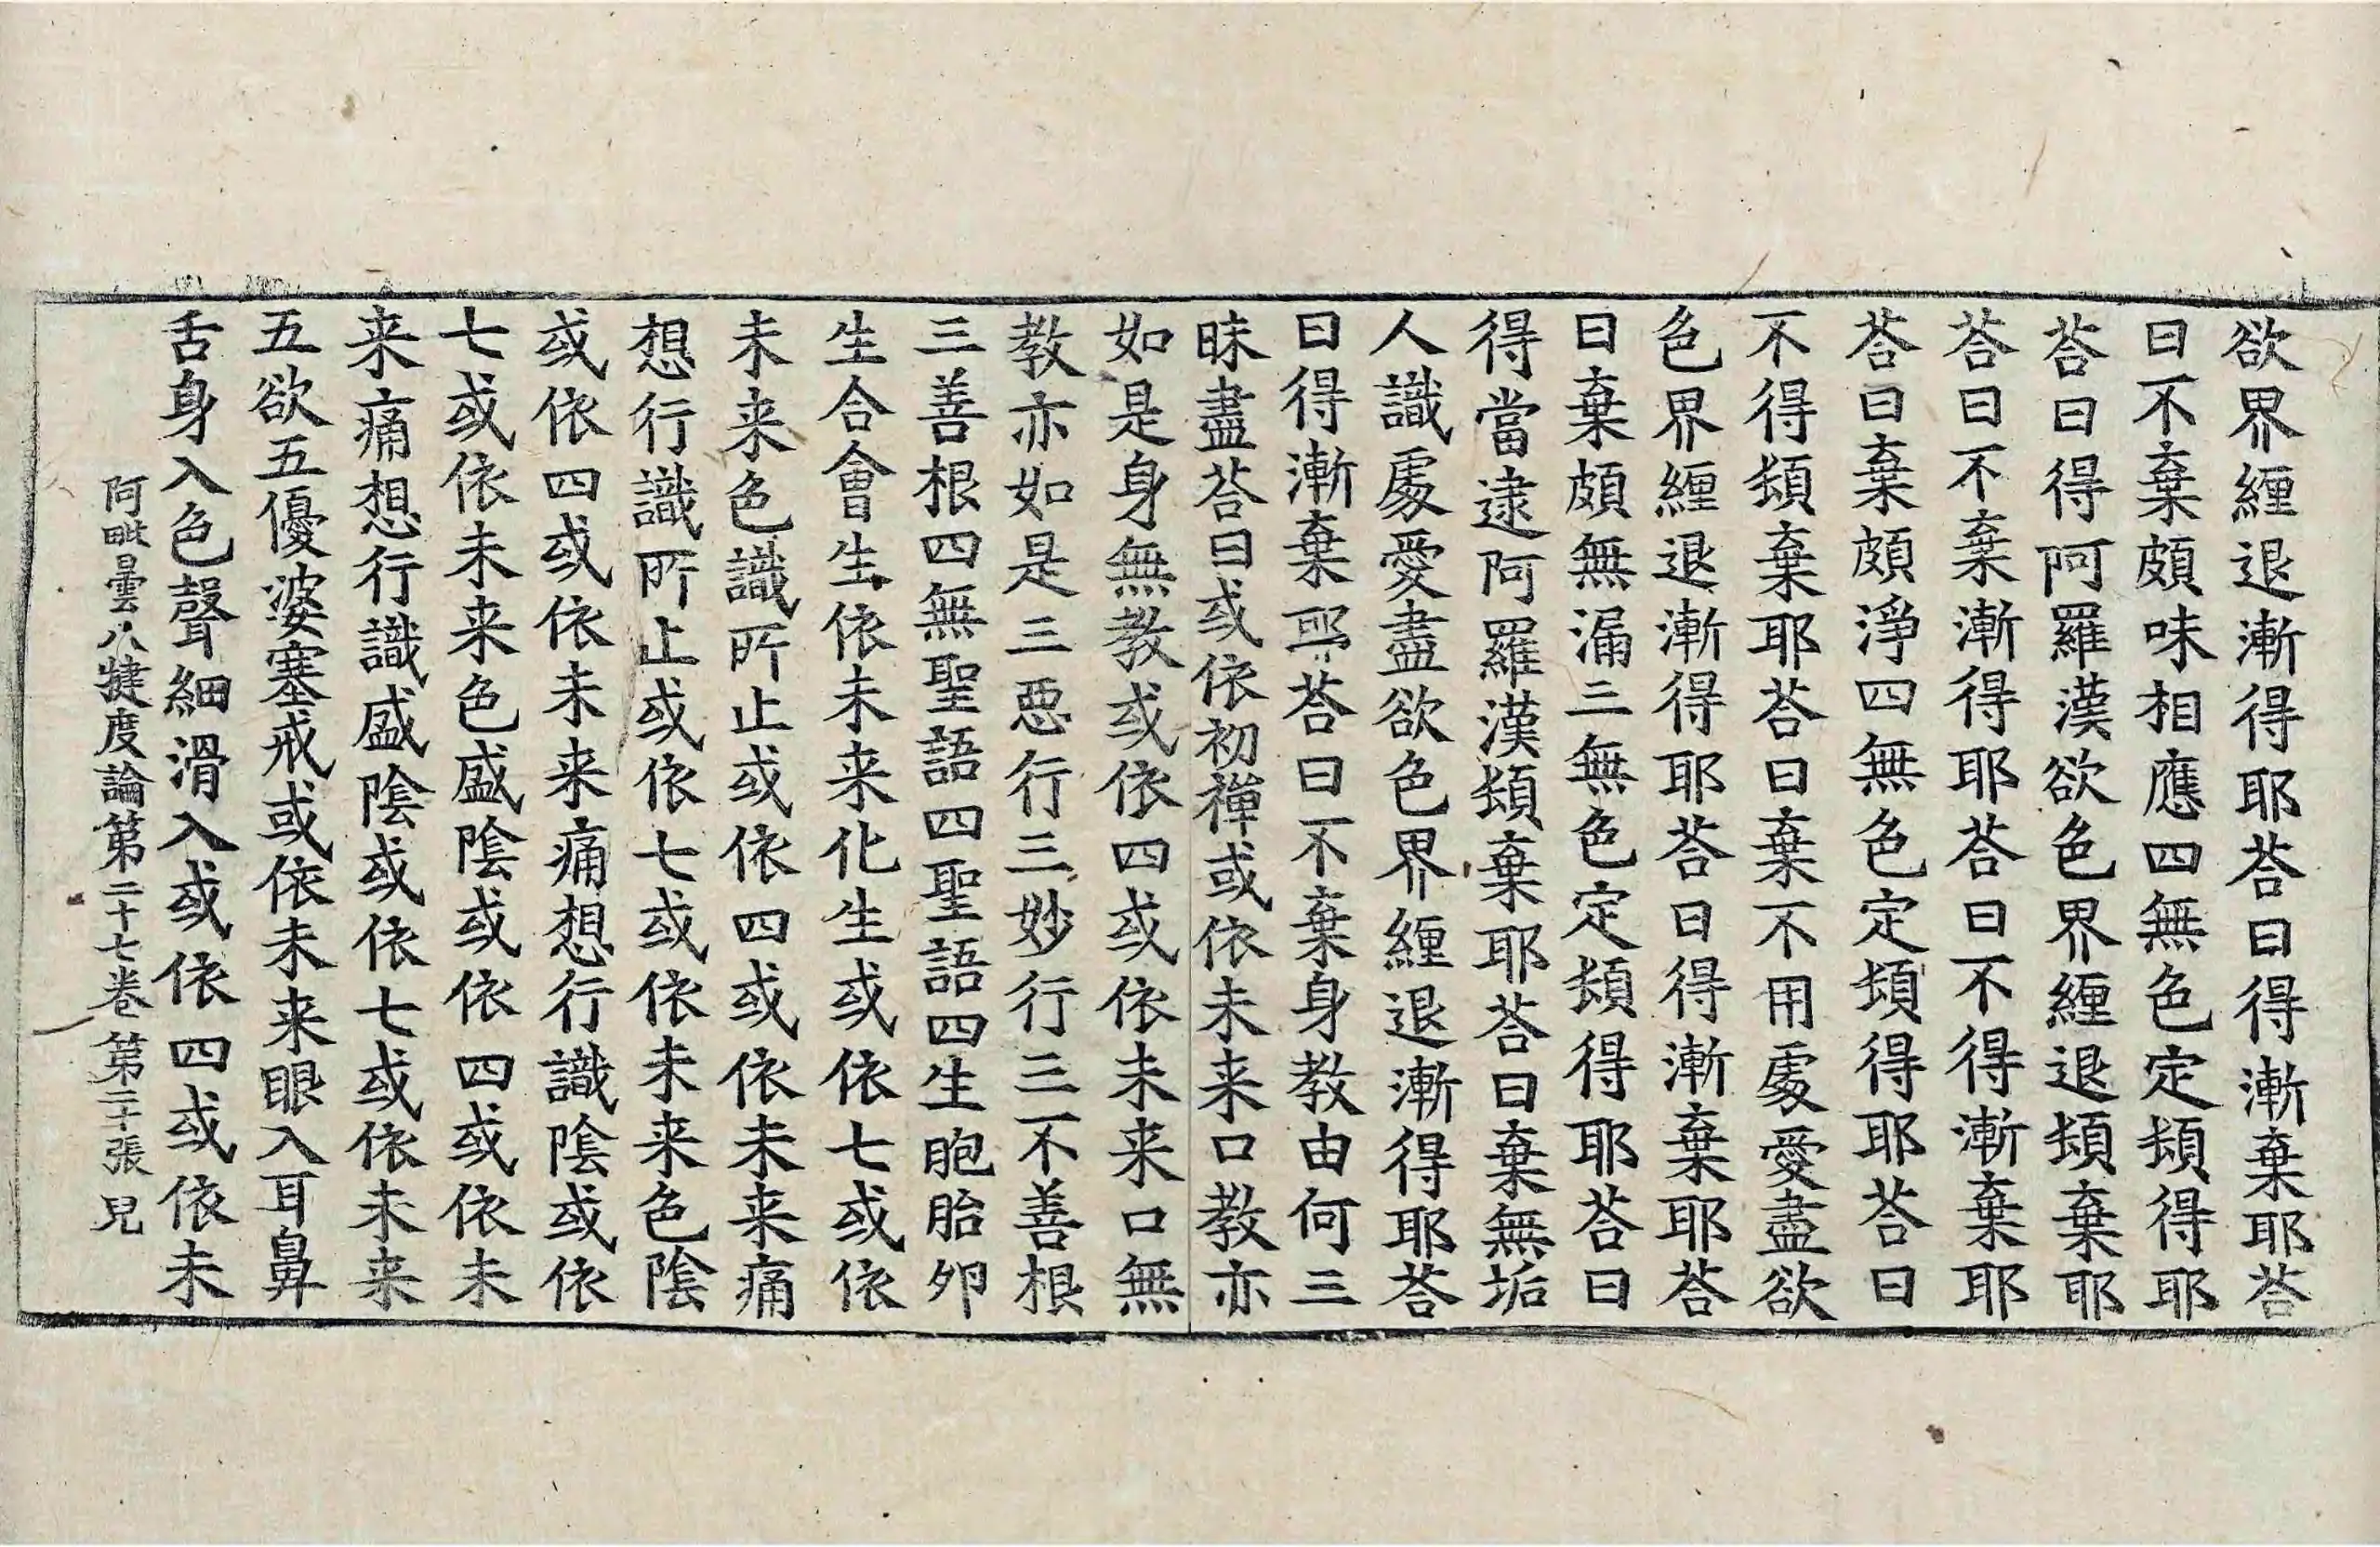 欲界纏退漸得耶荅曰得漸棄耶荅
曰不棄頗味相應四無色定頓得耶
荅曰得阿羅漢欲色界纏退頓棄耶
荅曰不棄漸得耶荅曰不得漸棄耶
荅曰棄頗淨四無色定頓得耶荅曰
不得頓棄耶荅曰棄不用處愛盡欲
色界纏退漸得耶荅曰得漸棄耶荅
曰棄頗無漏三無色定頓得耶荅曰
得當逮阿羅漢頓棄耶荅曰棄無垢
人識處愛盡欲色界纏退漸得耶荅
曰得漸棄耶荅曰不棄身教由何三
昧盡荅曰或依初禪或依未来口教亦
如是身無教或依四或依未来口無
教亦如是三惡行三妙行三不善根
三善根四無聖語四聖語四生胞胎夘
生合會生依未来化生或依七或依
未来色識所止或依四或依未来痛
想行識所止或依七或依未来色陰
或依四或依未来痛想行識陰或依
七或依未来色盛陰或依四或依未
来痛想行識盛陰或依七或依未来
五欲五優婆塞戒或依未来眼入耳鼻
舌身入色聲細滑入或依四或依未
阿毗曇八犍度論第二十七卷 第二十張 皃